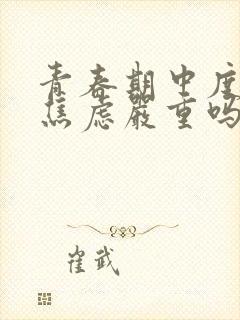 青春期中度
焦虑严重吗
崔武